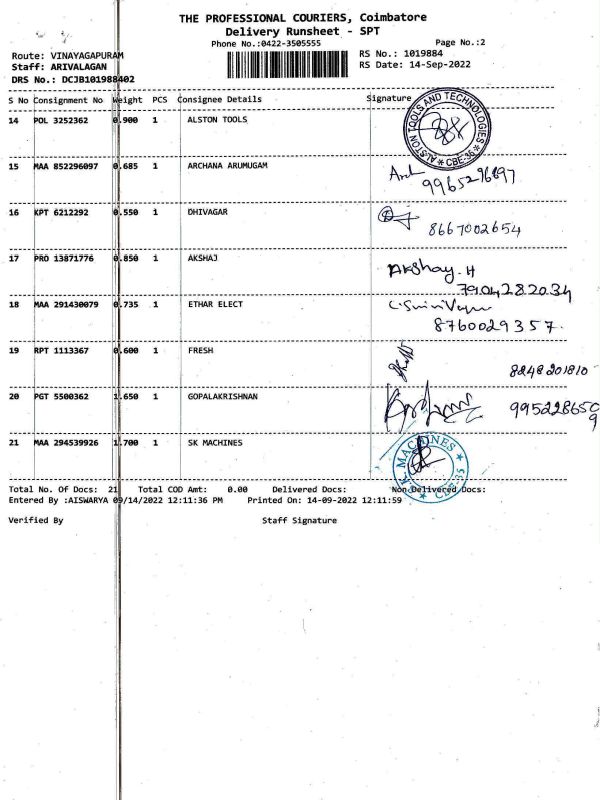 THE PROFESSIONAL COURIERS, Coimbatore
Delivery Runsheet - SPT
Phone No.:0422-3505555 Page No.:2
Route: VINAYAGAPURAM RS No.: 1019884
Staff: ARIVALAGAN RS Date: 14-Sep-2022
DRS No.: DCJB101988402
S No Consignment No Weight PCS Consignee Details Signature
14 POL 3252362 0.900 1 ALSTON TOOLS
ALSTON TOOLS AND TECHNOLOGIES ★ CBE-35 ★
15 MAA 852296097 0.685 1 ARCHANA ARUMUGAM
9965296897
16 KPT 6212292 0.550 1 DHIVAGAR
8667002654
17 PRO 13871776 0.850 1 AKSHAJ Akshay.H
7904282034
18 MAA 291430079 0.735 1 ETHAR ELECT
8760029357.
19 RPT 1113367 0.600 1 FRESH
8248201810
20 PGT 5500362 1.650 1 GOPALAKRISHNAN
9952286509
21 MAA 294539926 1.700 1 SK MACHINES
K MACHINES ★ CBE-35 ★
Total No. Of Docs: 21 Total COD Amt: 0.00 Delivered Docs: Non Delivered Docs:
Entered By :AISWARYA 09/14/2022 12:11:36 PM Printed On: 14-09-2022 12:11:59
Verified By Staff Signature